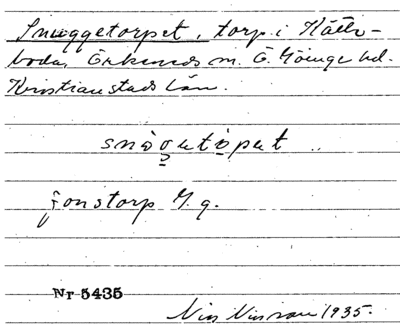 Snuggetorpet, torp i Hätte-
boda, Örkeneds sn. Ö. Göinge hd.
Kristianstads län.
snògɐtòpɐt
Jonstorp Gg.
Nr 5435
Nils Nilsson 1935.